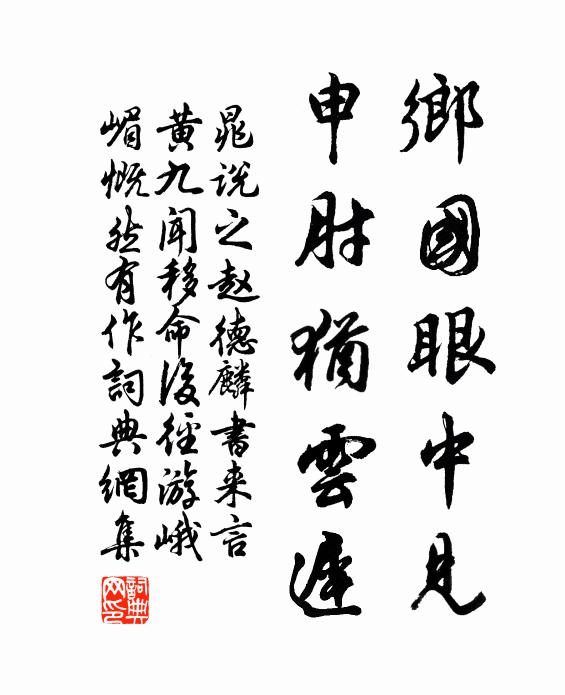 鄉國眼中見
申肘猶雲遲
晁說之趙德麟書来言
黄九聞移命後徑游峨
嵋慨然有作詞典網集
詞典
网印